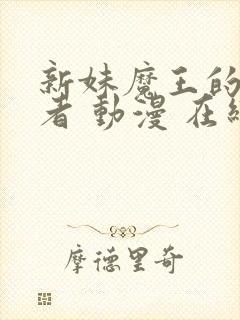 新妹魔王的
者 動漫 在
摩德里奇